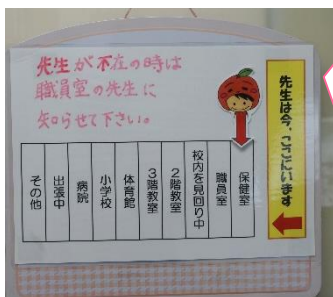 先生が不在の時は
職員室の先生に
知らせて下さい。
先生は今、ここにいます
保健室
職員室
校内を見回り中
2階教室
3階教室
体育館
小学校
病院
出張中
その他